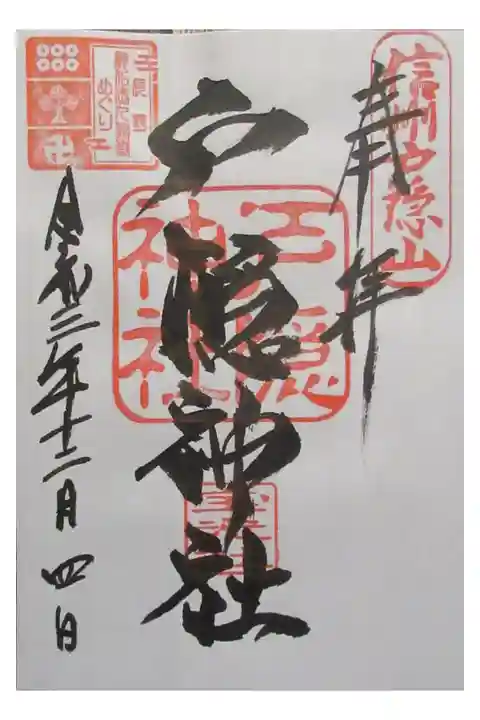 奉拝
信州戸隠山
戸隠神社
戸隠
神社
令和三年十二月四日
めぐり